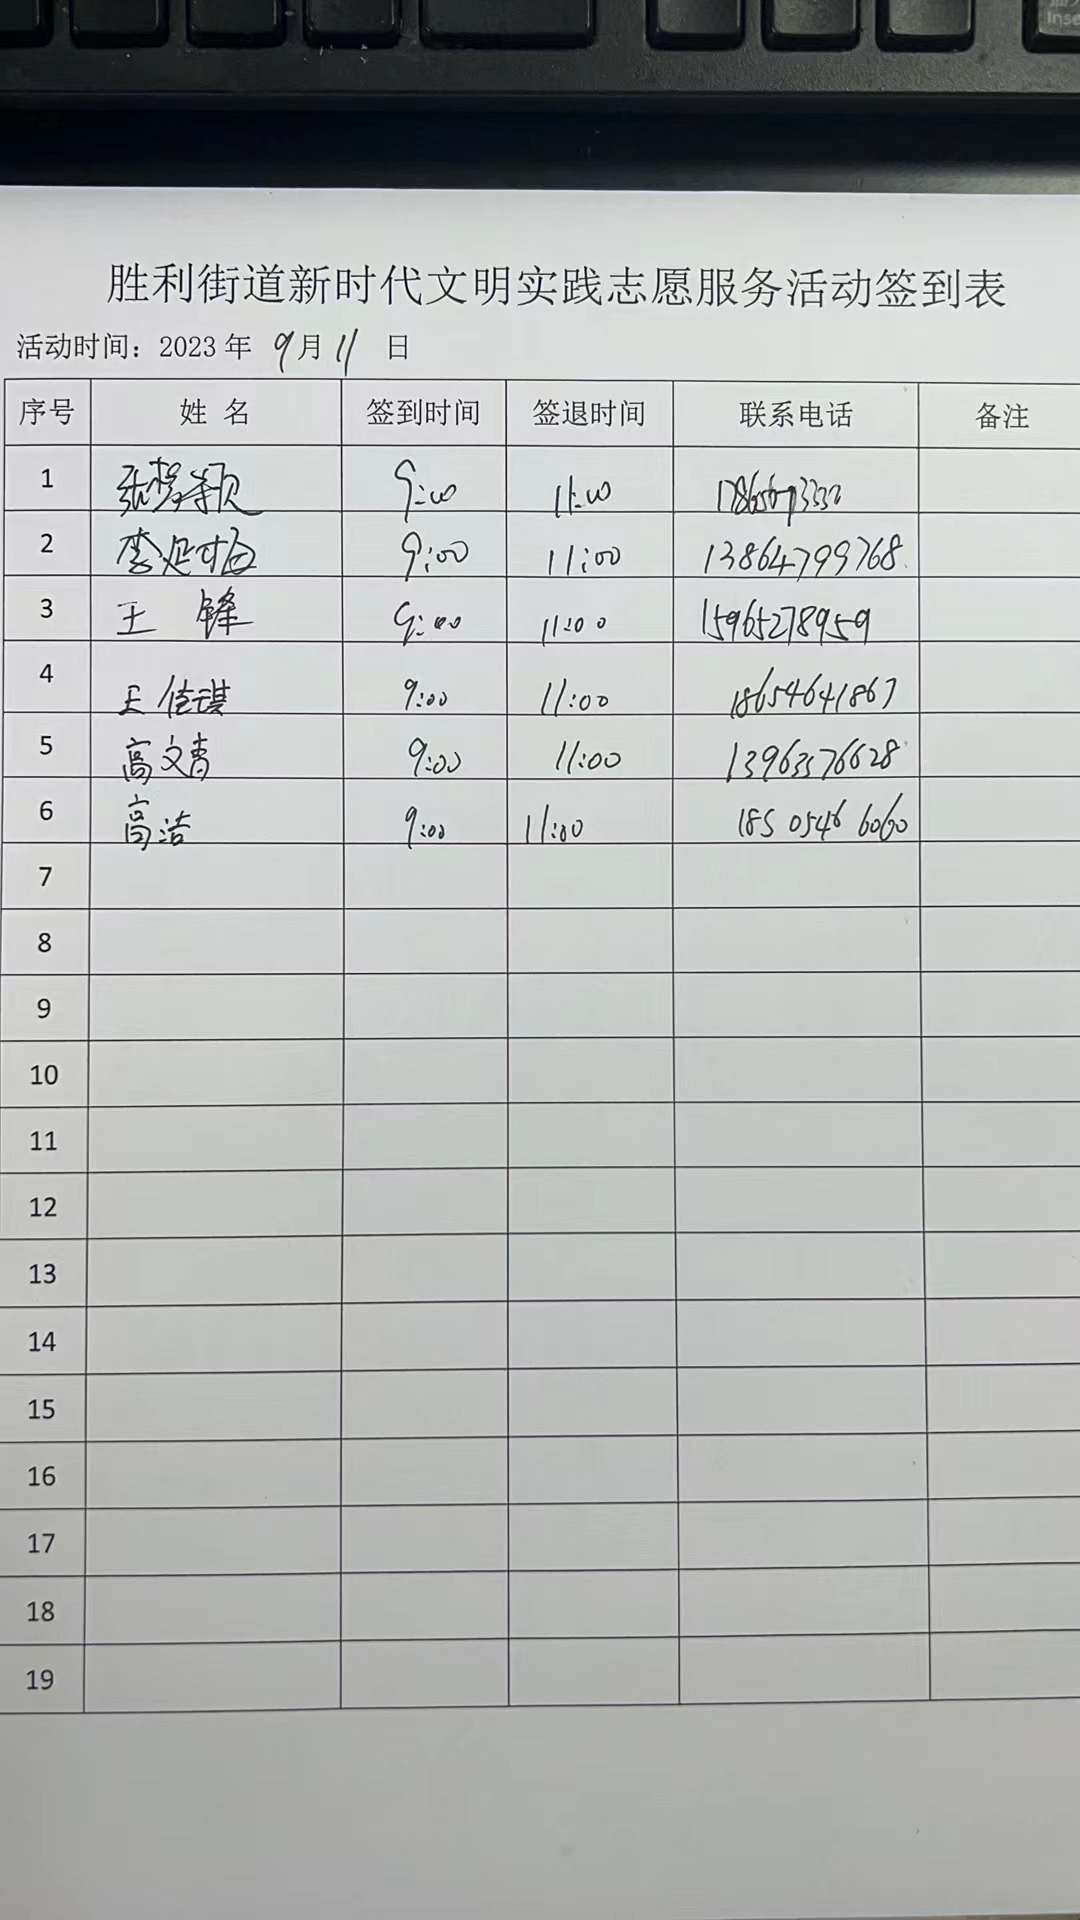 Inse
胜利街道新时代文明实践志愿服务活动签到表
活动时间：2023年 9月11 日
序号 姓 名 签到时间 签退时间 联系电话 备注
1 9:00 11:00
2 9:00 11:00 13864799768
3 王 锋 9:00 11:00 15965278959
4 王佳琪 9:00 11:00 18654641867
5 高文青 9:00 11:00 13963576628
6 高洁 9:00 11:00 185 0546 6060
7
8
9
10
11
12
13
14
15
16
17
18
19